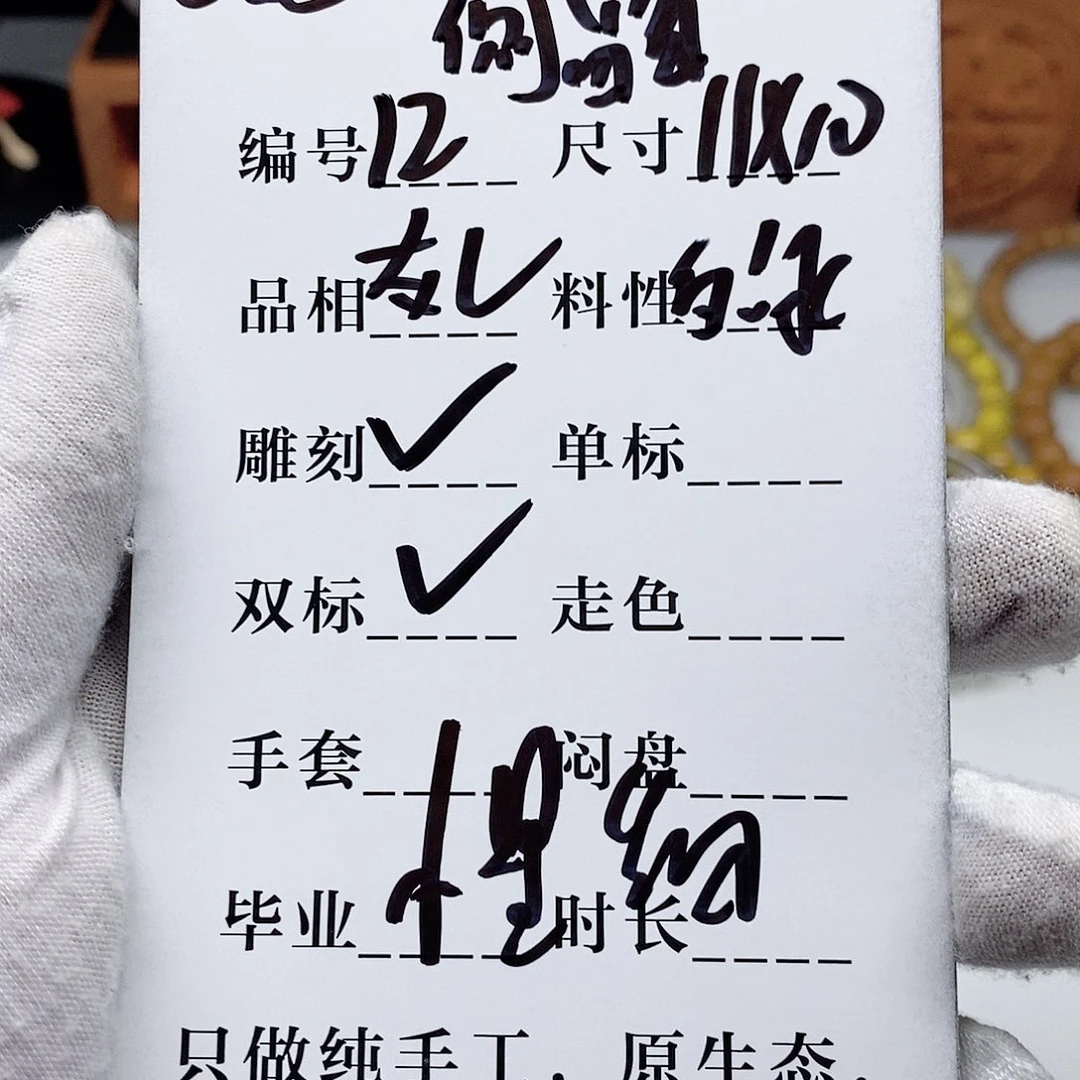 编号 12 尺寸 11X10
品相 友し 料性
雕刻 ✓ 单标
双标 ✓ 走色
手套 闷盘
毕业 时长
只做纯手工，原生态，